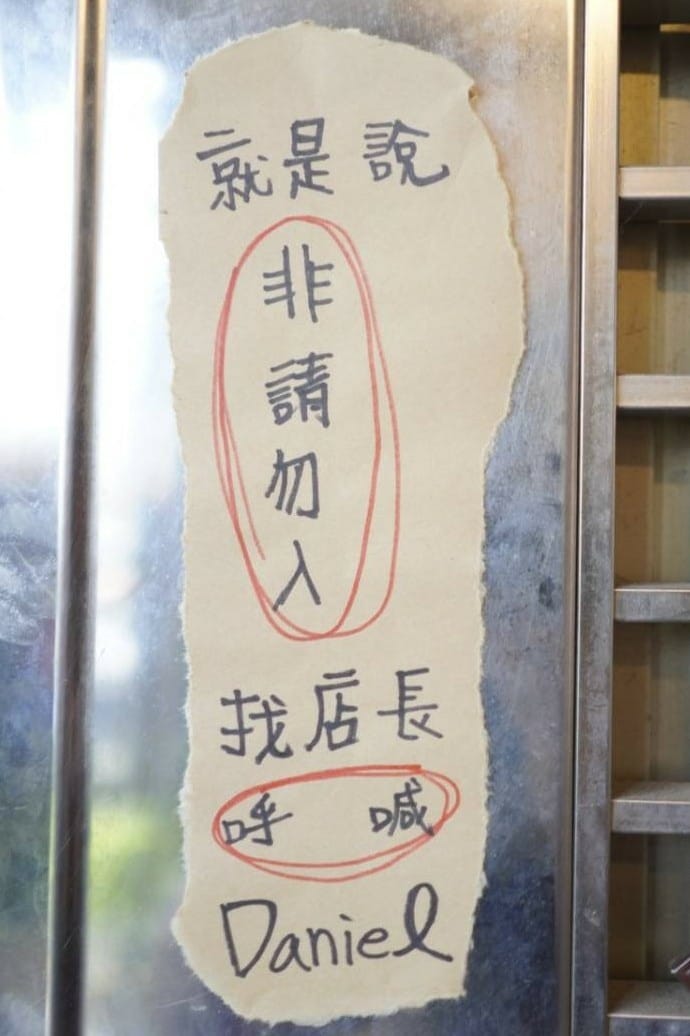 就是說
非請勿入
找店長
呼 喊
Daniel